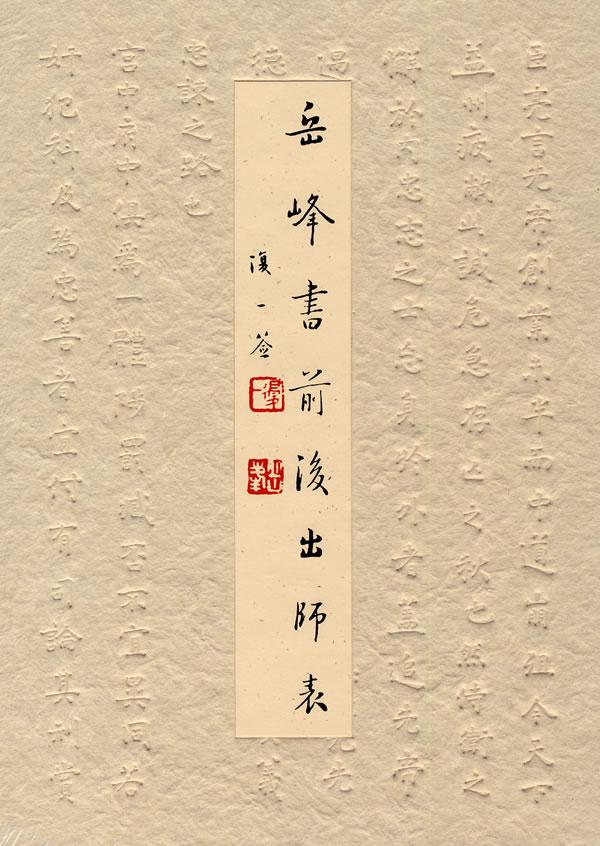 岳峰書前後出師表
復一签
復一
臣亮言先帝創業未半而中道崩殂今天下
益州疲敝此誠危急存亡之秋也然侍衛之
懈於內忠志之士忘身於外者蓋追先帝
遇
先
德
義
忠諫之路也
宮中府中俱為一體陟罰臧否不宜異同若
奸犯科及為忠善者宜付有司論其刑賞